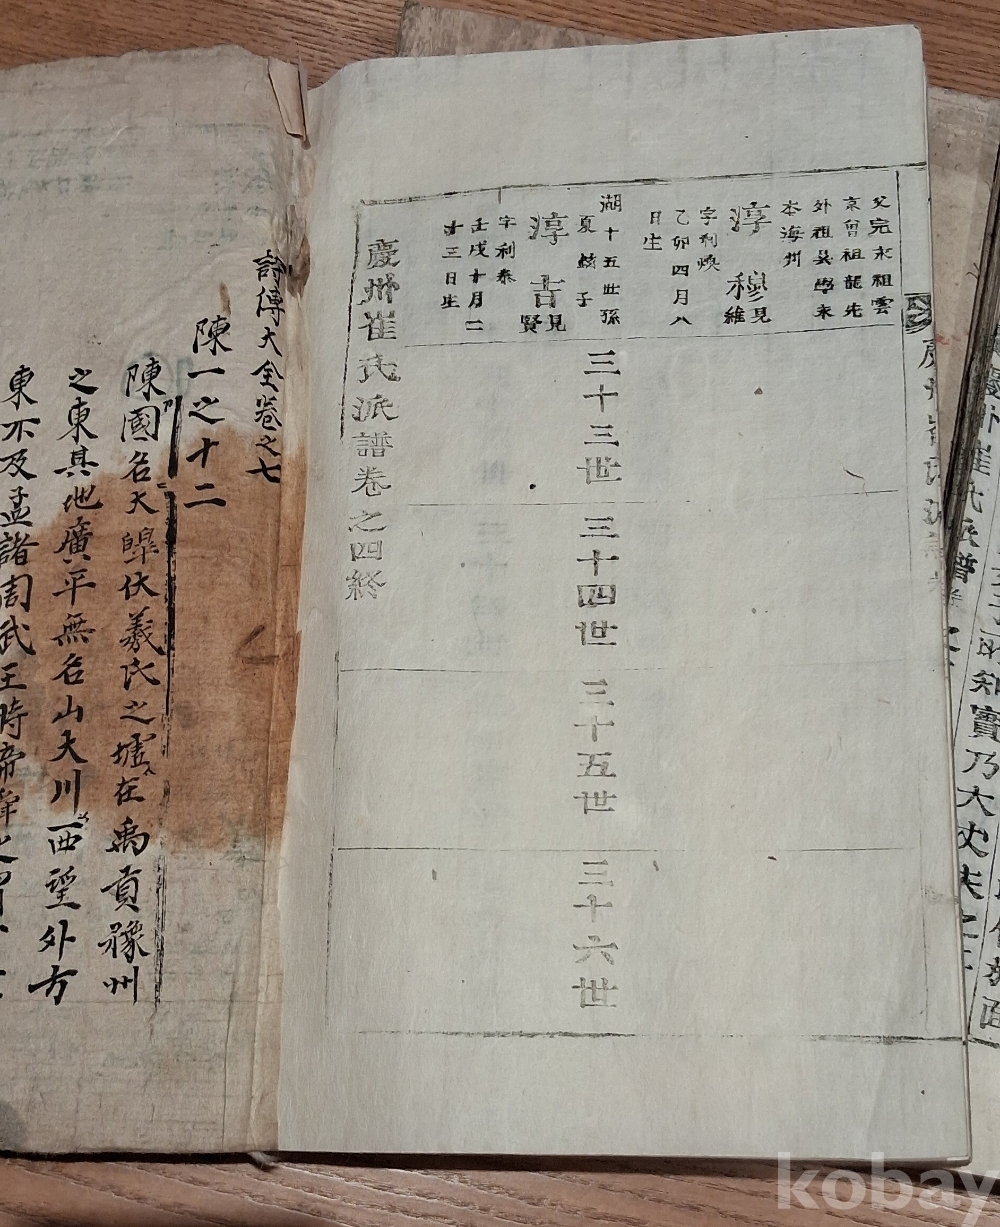 父完永祖雲
京曾祖龍先
外祖吳學永
本海州
淳穆見維
字利煥
乙卯四月八
日生
湖十五世孫
夏鉉子
淳吉見賢
字利泰
壬戌十月二
十三日生
三十三世
三十四世
三十五世
三十六世
慶州崔氏派譜卷之四終
慶州崔氏派譜卷
詩傳大全卷之七
陳一之十二
陳國名大皥伏羲氏之墟在禹貢豫州
之東其地廣平無名山大川西望外方
東不及孟諸周武王時帝舜之
慶州崔氏派譜卷之
知實乃大丈夫之
kobay